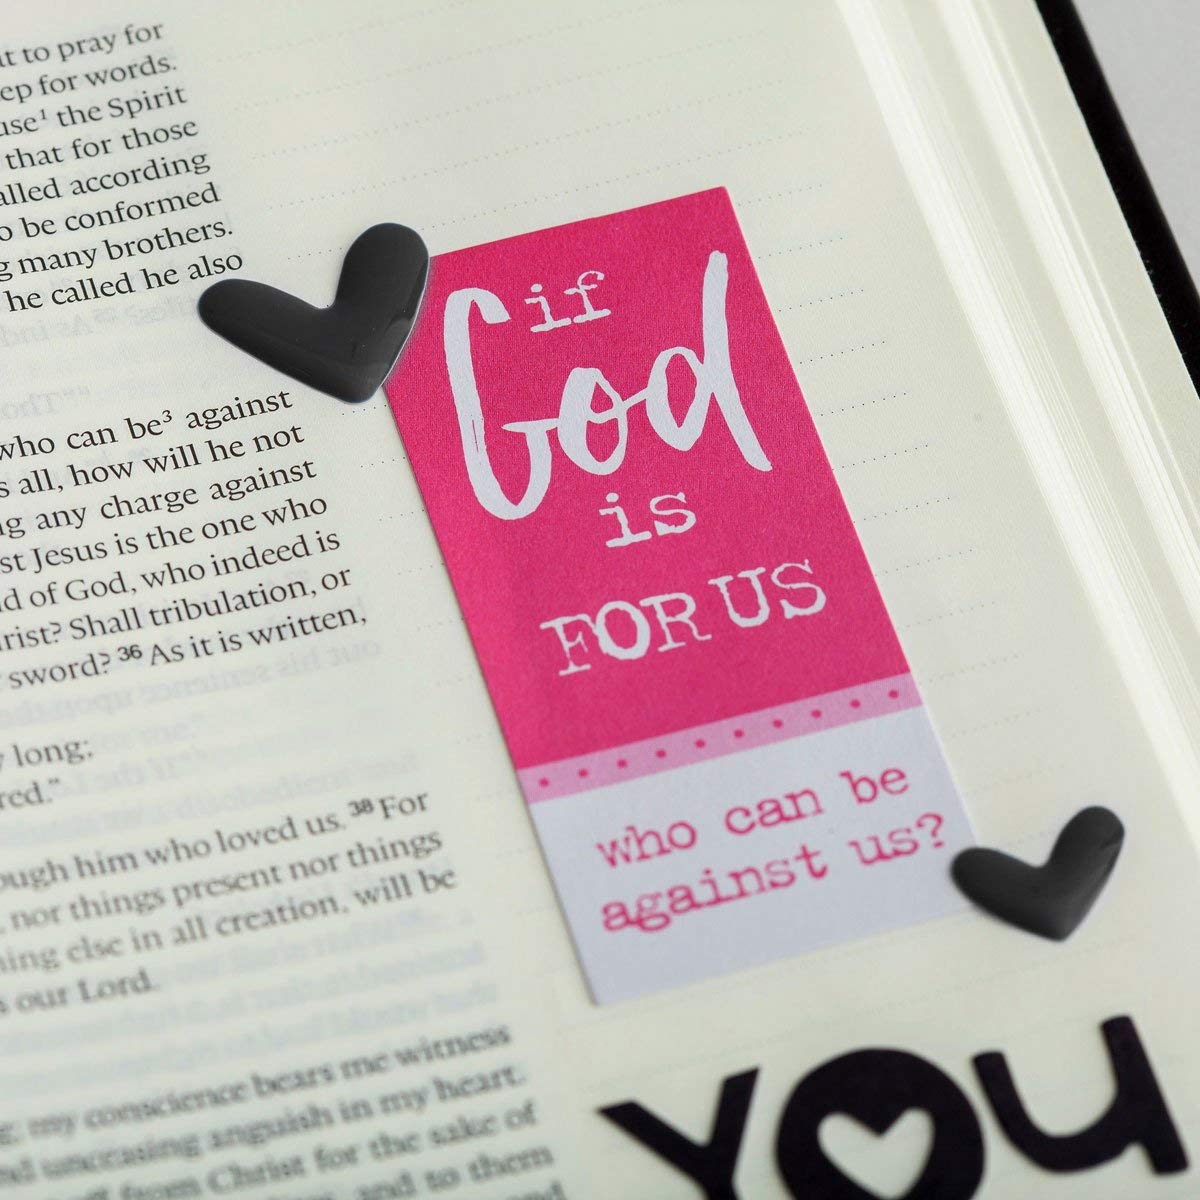 it to pray for
ep for words.
use¹ the Spirit
that for those
alled according
o be conformed
g many brothers.
he called he also
who can be³ against
s all, how will he not
ng any charge against
st Jesus is the one who
d of God, who indeed is
rist? Shall tribulation, or
sword? ³⁶ As it is written,
y long;
red."
ough him who loved us. ³⁸ For
, nor things present nor things
hing else in all creation, will be
our Lord.
my conscience bears me witness
nd unceasing anguish in my heart.
off from Christ for the sake of
Israelites, and to them
if
God
is
FOR US
who can be
against us?
YOU